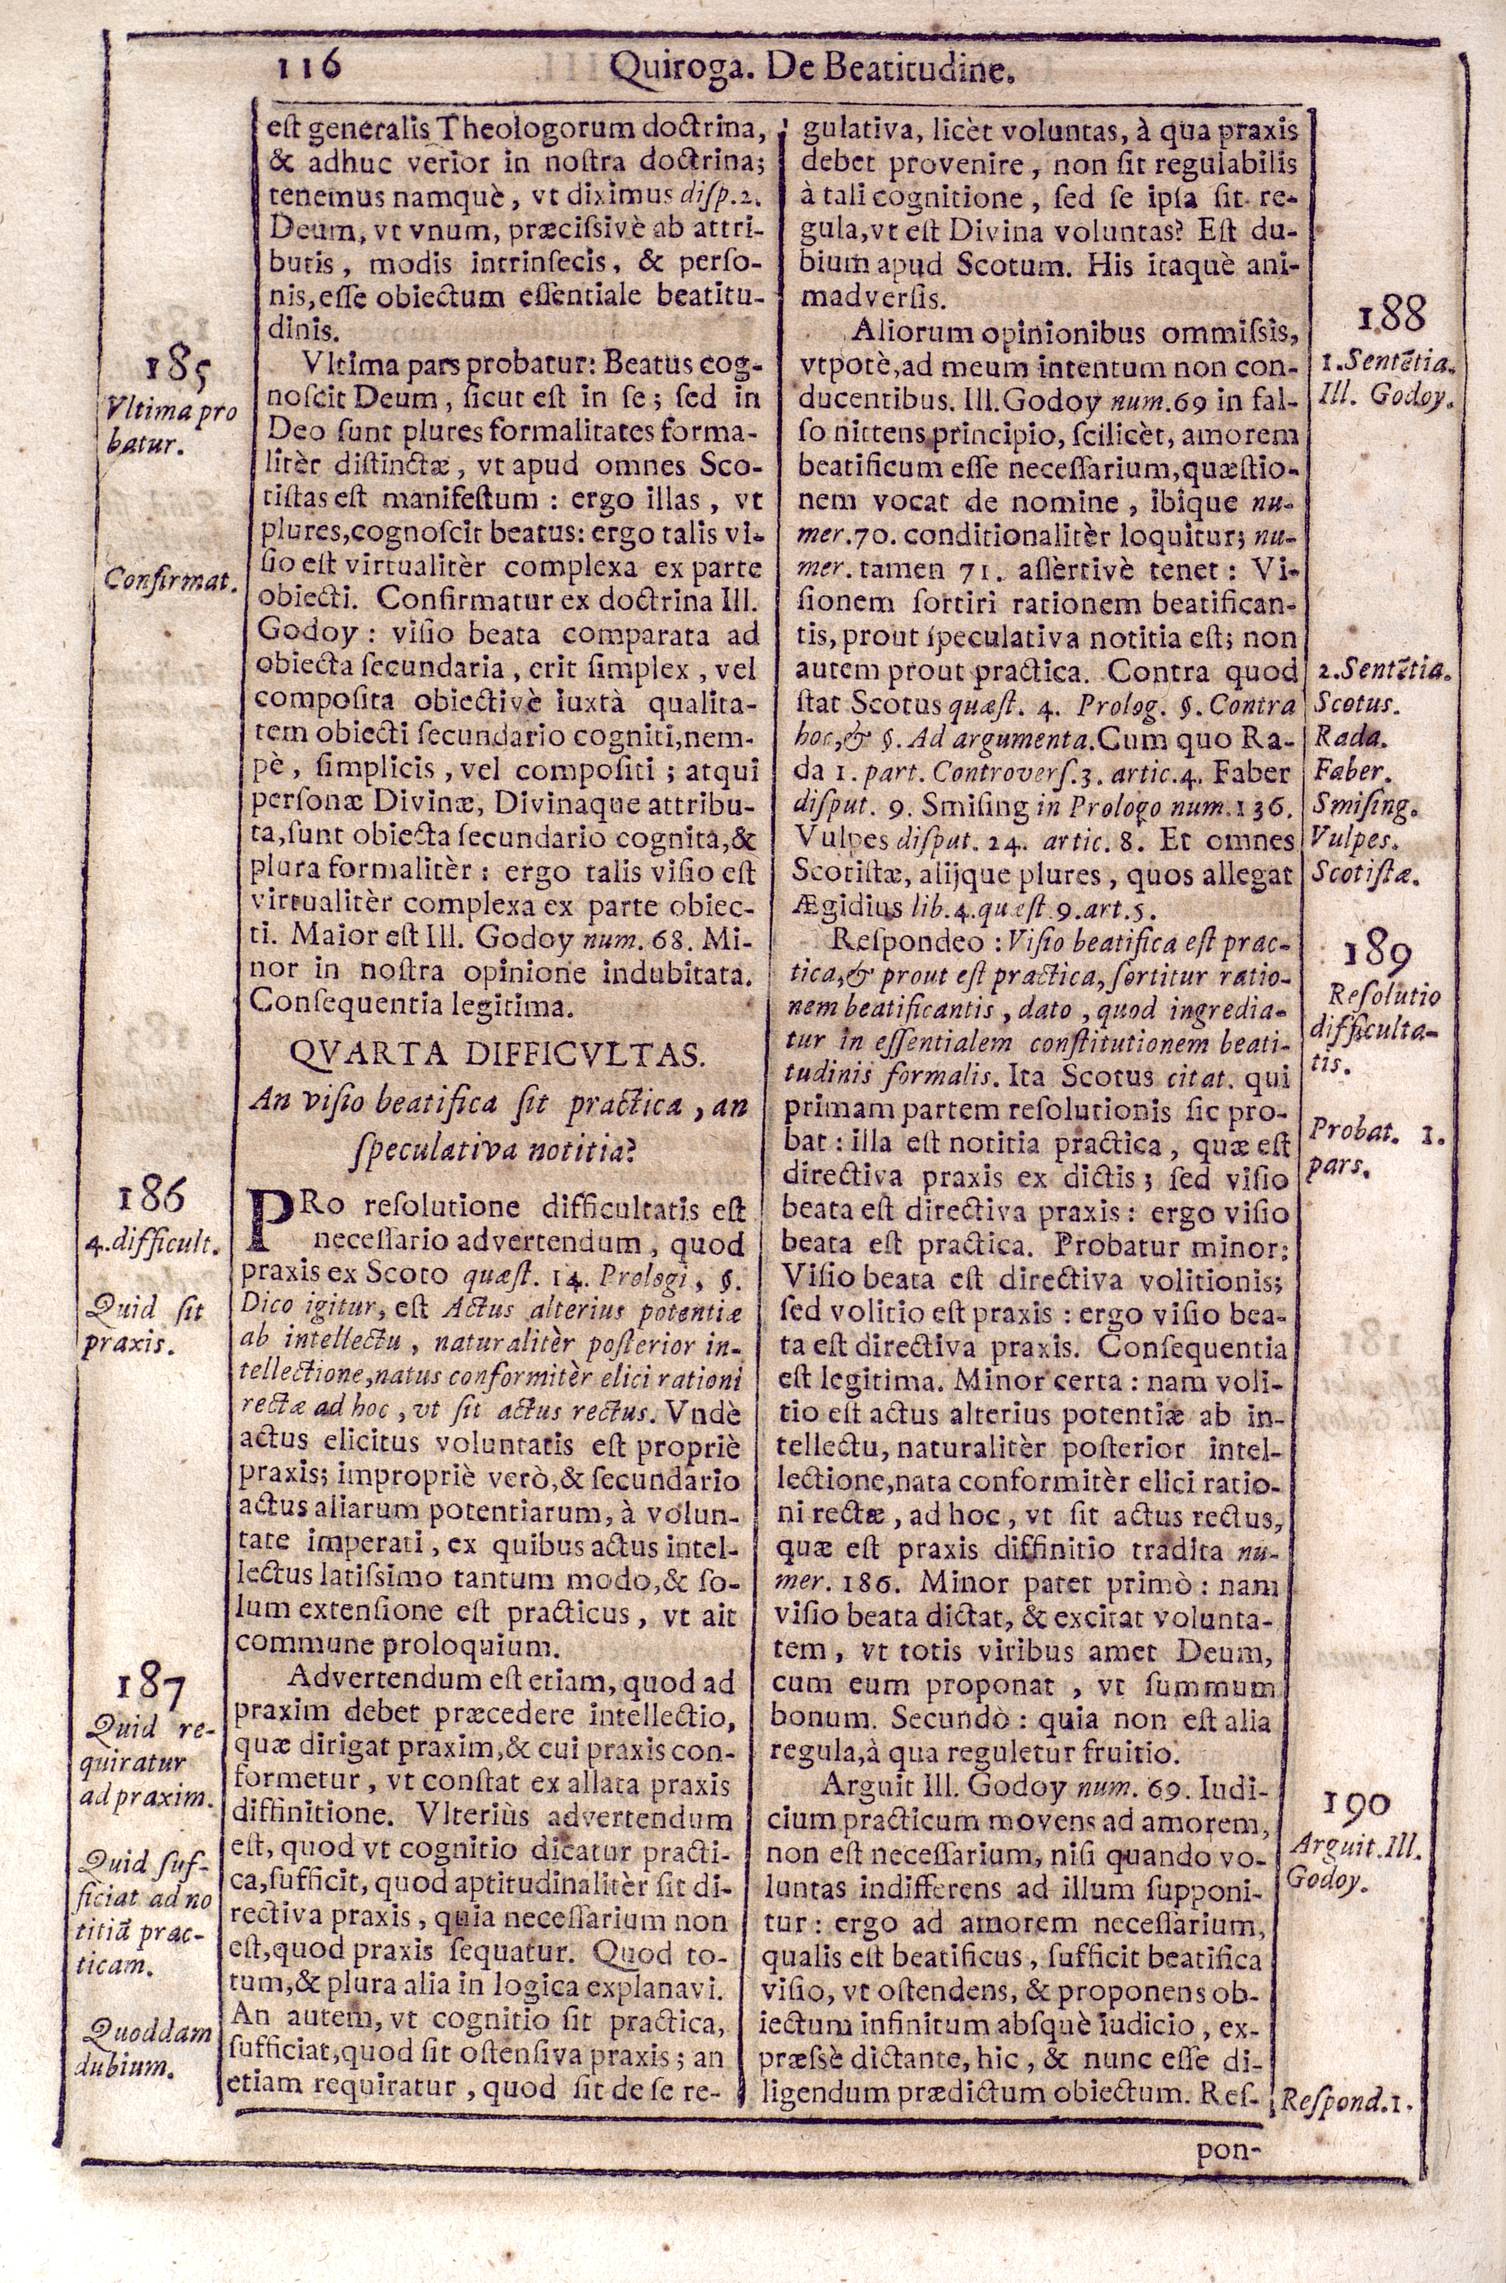 116
Quiroga. De Beatitudine.
est generalis Theologorum doctrina,
& adhuc verior in nostra doctrina;
tenemus namquè, vt diximus disp.2.
Deum, vt vnum, præcissivè ab attri-
butis, modis intrinsecis, & perso-
nis, esse obiectum essentiale beatitu-
dinis.
185
Vltima pro
batur.
Vltima pars probatur: Beatus cog-
noscit Deum, sicut est in se; sed in
Deo sunt plures formalitates forma-
litèr distinctæ, vt apud omnes Sco-
tistas est manifestum: ergo illas, vt
plures, cognoscit beatus: ergo talis vi-
sio est virtualitèr complexa ex parte
Confirmat.
obiecti. Confirmatur ex doctrina Ill.
Godoy: visio beata comparata ad
obiecta secundaria, erit simplex, vel
composita obiectivè iuxtà qualita-
tem obiecti secundario cogniti, nem-
pè, simplicis, vel compositi; atqui
personæ Divinæ, Divinaque attribu-
ta, sunt obiecta secundario cognita, &
plura formalitèr: ergo talis visio est
virtualitèr complexa ex parte obiec-
ti. Maior est Ill. Godoy num. 68. Mi-
nor in nostra opinione indubitata.
Consequentia legitima.
QVARTA DIFFICVLTAS.
An visio beatifica sit practica, an
speculativa notitia?
186
4. difficult.
Quid sit
praxis.
PRo resolutione difficultatis est
necessario advertendum, quod
praxis ex Scoto quæst. 14. Prologi, §.
Dico igitur, est Actus alterius potentiæ
ab intellectu, naturalitèr posterior in-
tellectione, natus conformitèr elici rationi
rectæ ad hoc, vt sit actus rectus. Vndè
actus elicitus voluntatis est propriè
praxis; impropriè verò, & secundario
actus aliarum potentiarum, à volun-
tate imperati, ex quibus actus intel-
lectus latissimo tantum modo, & so-
lum extensione est practicus, vt ait
commune proloquium.
187
Quid re-
quiratur
ad praxim.
Advertendum est etiam, quod ad
praxim debet præcedere intellectio,
quæ dirigat praxim, & cui praxis con-
formetur, vt constat ex allata praxis
diffinitione. Vlteriùs advertendum
est, quod vt cognitio dicatur practi-
ca, sufficit, quod aptitudinalitèr sit di-
rectiva praxis, quia necessarium non
est, quod praxis sequatur. Quod to-
tum, & plura alia in logica explanavi.
An autem, vt cognitio sit practica,
sufficiat, quod sit ostensiva praxis; an
etiam requiratur, quod sit de se re-
Quid suf-
ficiat ad no
titiā prac-
ticam.
Quoddam
dubium.
gulativa, licèt voluntas, à qua praxis
debet provenire, non sit regulabilis
à tali cognitione, sed se ipsa sit re-
gula, vt est Divina voluntas? Est du-
bium apud Scotum. His itaquè ani-
madversis.
188
1. Sentētia.
Ill. Godoy.
Aliorum opinionibus ommissis,
vtpotè, ad meum intentum non con-
ducentibus. Ill. Godoy num. 69 in fal-
so nittens principio, scilicèt, amorem
beatificum esse necessarium, quæstio-
nem vocat de nomine, ibique nu-
mer. 70. conditionalitèr loquitur; nu-
mer. tamen 71. assèrtivè tenet: Vi-
sionem sortiri rationem beatifican-
tis, prout speculativa notitia est; non
autem prout practica. Contra quod
stat Scotus quæst. 4. Prolog. §. Contra
hoc, & §. Ad argumenta. Cum quo Ra-
da 1. part. Controvers. 3. artic. 4. Faber
disput. 9. Smising in Prologo num. 136.
Vulpes disput. 24. artic. 8. Et omnes
Scotistæ, alijque plures, quos allegat
Ægidius lib. 4. quæst. 9. art. 5.
2. Sentētia.
Scotus.
Rada.
Faber.
Smising.
Vulpes.
Scotistæ.
189
Resolutio
difficulta-
tis.
Respondeo: Visio beatifica est prac-
tica, & prout est practica, sortitur ratio-
nem beatificantis, dato, quod ingredia-
tur in essentialem constitutionem beati-
tudinis formalis. Ita Scotus citat. qui
primam partem resolutionis sic pro-
bat: illa est notitia practica, quæ est
directiva praxis ex dictis; sed visio
beata est directiva praxis: ergo visio
beata est practica. Probatur minor:
Visio beata est directiva volitionis;
sed volitio est praxis: ergo visio bea-
ta est directiva praxis. Consequentia
est legitima. Minor certa: nam voli-
tio est actus alterius potentiæ ab in-
tellectu, naturalitèr posterior intel-
lectione, nata conformitèr elici ratio-
ni rectæ, ad hoc, vt sit actus rectus,
quæ est praxis diffinitio tradita nu-
mer. 186. Minor patet primò: nam
visio beata dictat, & excitat volunta-
tem, vt totis viribus amet Deum,
cum eum proponat, vt summum
bonum. Secundò: quia non est alia
regula, à qua reguletur fruitio.
Probat. 1.
pars.
190
Arguit. Ill.
Godoy.
Arguit Ill. Godoy num. 69. Iudi-
cium practicum movens ad amorem,
non est necessarium, nisi quando vo-
luntas indifferens ad illum supponi-
tur: ergo ad amorem necessarium,
qualis est beatificus, sufficit beatifica
visio, vt ostendens, & proponens ob-
iectum infinitum absquè iudicio, ex-
præssè dictante, hic, & nunc esse di-
ligendum prædictum obiectum. Res-
Respond. 1.
pon-